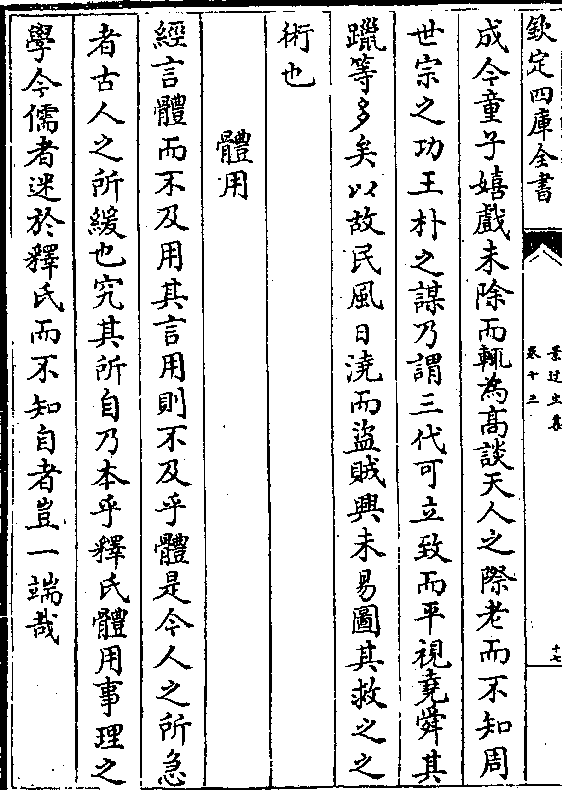 欽定四庫全書
景迂生集
卷十三
十七
成今童子嬉戲未除而輒為髙談天人之際老而不知周
世宗之功王朴之謀乃謂三代可立致而平視堯舜其
躐等多矣以故民風日澆而盜賊興未易圖其救之之
術也
體用
經言體而不及用其言用則不及乎體是今人之所急
者古人之所緩也究其所自乃本乎釋氏體用事理之
學今儒者迷於釋氏而不知自者豈一端哉